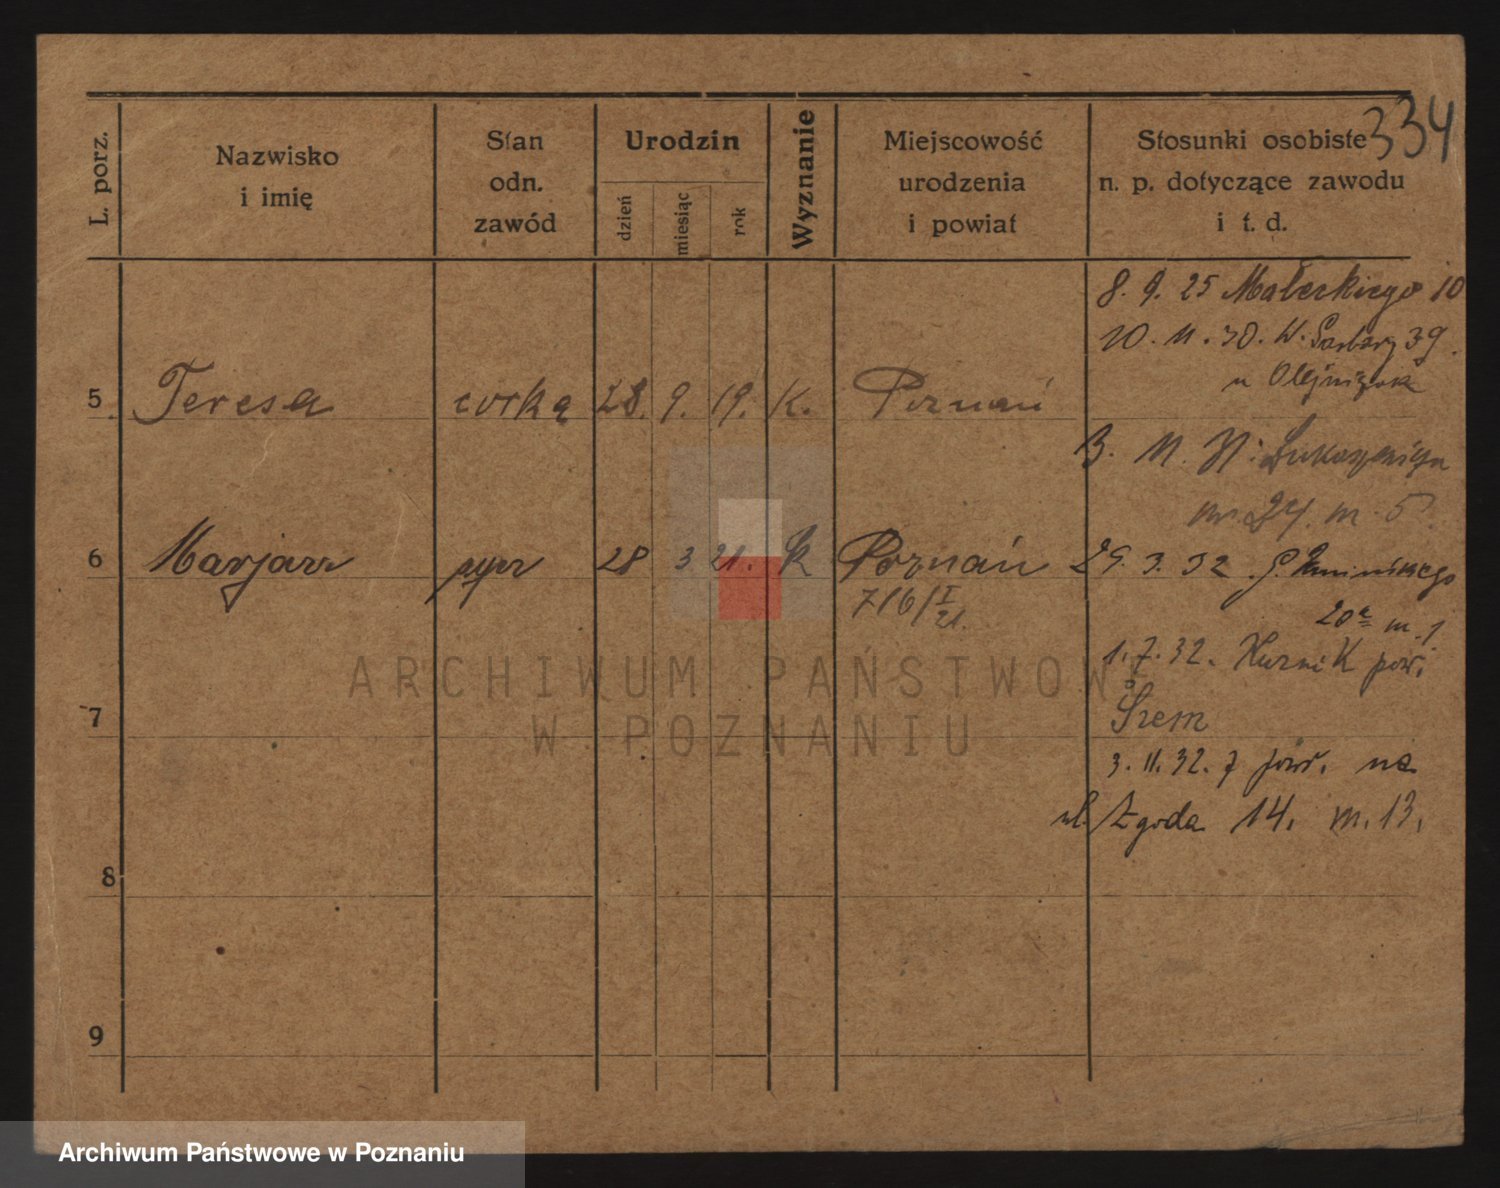 334
L. porz.
Nazwisko
i imię
Stan
odn.
zawód
Urodzin
dzień
miesiąc
rok
Wyznanie
Miejscowość
urodzenia
i powiat
Stosunki osobiste
n. p. dotyczące zawodu
i t. d.
8. 9. 25 Małeckiego 10
10. 11. 30. W. Garbary 39.
u Olejniczak
5 Teresa córka 28. 9. 19. K. Poznań
3. 11. 31.
nr. 24. m. 5.
6 Marjan syn 28 3 21. K Poznań
716/I 21.
29. 3. 32
20a m. 1
1. 7. 32. Kurnik pow.
Śrem
7
3. 11. 32. z pow. na
ul. Zgoda 14. m. 13.
8
9
ARCHIWUM PAŃSTWOWE
W POZNANIU
Archiwum Państwowe w Poznaniu